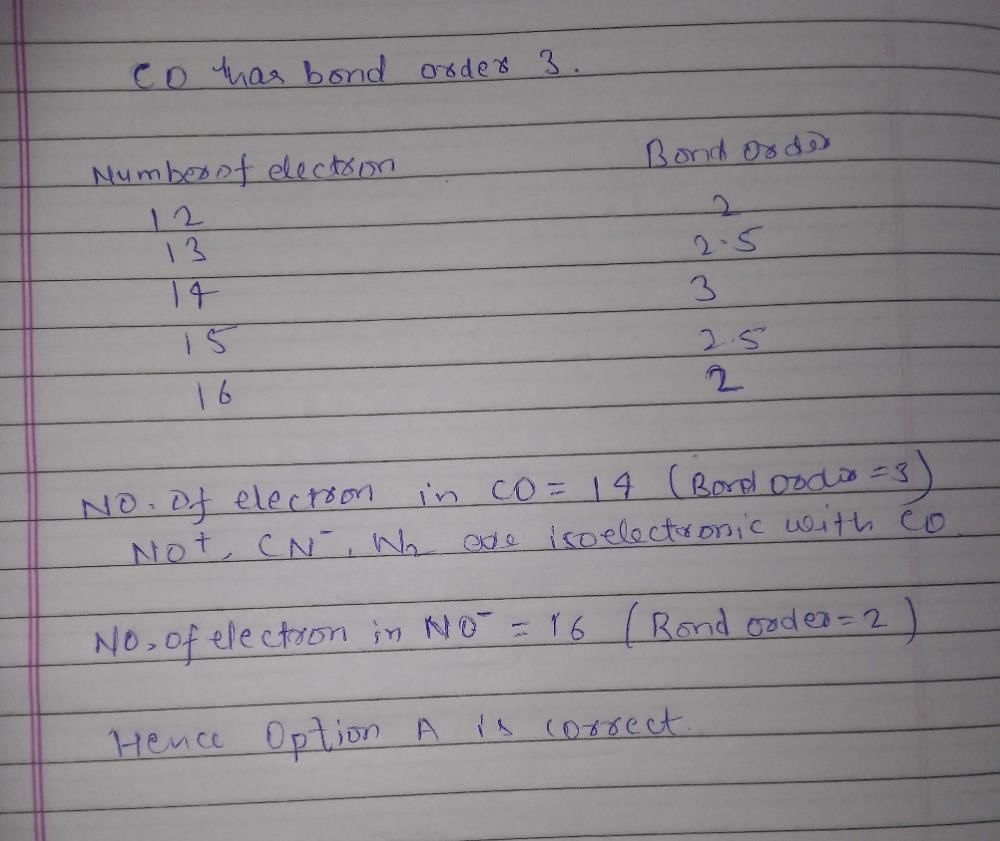 CO has bond order 3.
Number of electron Bond order
12 2
13 2.5
14 3
15 2.5
16 2
NO. Of electron in CO = 14 (Bond order = 3)
NO⁺, CN⁻, N₂ are isoelectronic with CO.
NO. of electron in NO⁻ = 16 (Bond order = 2)
Hence Option A is correct.